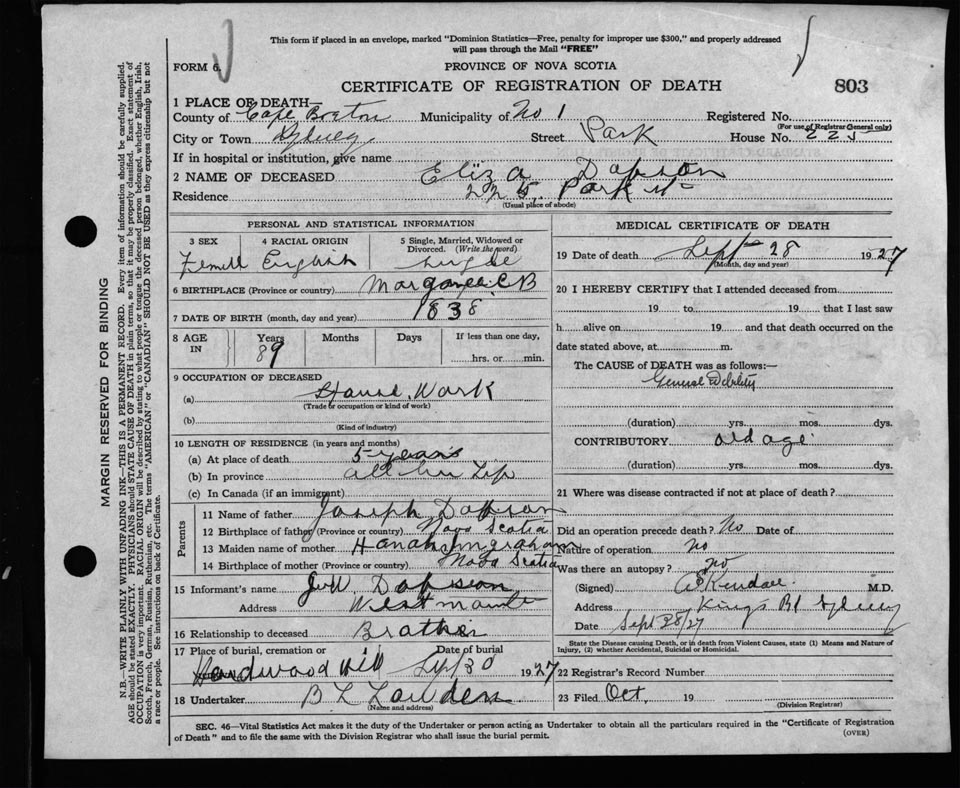 This form if placed in an envelope, marked "Dominion Statistics—Free, penalty for improper use $300," and properly addressed
will pass through the Mail "FREE"
FORM 6. PROVINCE OF NOVA SCOTIA
CERTIFICATE OF REGISTRATION OF DEATH 803
1 PLACE OF DEATH—
County of Cape Breton Municipality of No 1 Registered No.
(For use of Registrar General only)
City or Town Sydney Street Park House No. 225
If in hospital or institution, give name
2 NAME OF DECEASED Eliza Dobson
Residence 225. Park St
(Usual place of abode)
PERSONAL AND STATISTICAL INFORMATION
3 SEX 4 RACIAL ORIGIN 5 Single, Married, Widowed or Divorced. (Write the word)
Femell English single
6 BIRTHPLACE (Province or country) Margaree C B
7 DATE OF BIRTH (month, day and year) 1838
8 AGE IN Years Months Days If less than one day,
89 hrs. or min.
9 OCCUPATION OF DECEASED
(a) House Work
(Trade or occupation or kind of work)
(b)
(Kind of industry)
10 LENGTH OF RESIDENCE (in years and months)
(a) At place of death 5 years
(b) In province all her Life
(c) In Canada (if an immigrant)
Parents
11 Name of father Joseph Dobson
12 Birthplace of father (Province or country) Nova Scotia
13 Maiden name of mother Hanah Ingraham
14 Birthplace of mother (Province or country) Nova Scotia
15 Informant's name Dobson
Address Westmount
16 Relationship to deceased Brother
17 Place of burial, cremation or Date of burial
Hardwood Hill Sep 30 1927
18 Undertaker B L
(Name and address)
MEDICAL CERTIFICATE OF DEATH
19 Date of death Sept 28 1927
(Month, day and year)
20 I HEREBY CERTIFY that I attended deceased from
19 to 19 that I last saw
h alive on 19 and that death occurred on
date stated above, at m.
The CAUSE of DEATH was as follows:—
General Debility
(duration) yrs. mos. dys.
CONTRIBUTORY old age
(duration) yrs. mos. dys.
21 Where was disease contracted if not at place of death?
Did an operation precede death? No Date of
Nature of operation no
Was there an autopsy? no
(Signed) Kendall M.D.
Address Kings Rd Sydney
Date Sept 28/27
State the Disease causing Death, or in death from Violent Causes, state (1) Means and Nature of
Injury, (2) whether Accidental, Suicidal or Homicidal.
22 Registrar's Record Number
23 Filed Oct. 19
(Division Registrar)
SEC. 46—Vital Statistics Act makes it the duty of the Undertaker or person acting as Undertaker to obtain all the particulars required in the "Certificate of Registration
of Death" and to file the same with the Division Registrar who shall issue the burial permit.
(OVER)
MARGIN RESERVED FOR BINDING
N.B.—WRITE PLAINLY WITH UNFADING INK—THIS IS A PERMANENT RECORD. Every item of information should be carefully supplied.
AGE should be stated EXACTLY. PHYSICIANS should STATE CAUSE OF DEATH in plain terms, so that it may be properly classified. Exact statement of
OCCUPATION is very important. RACIAL ORIGIN will be described by stating to what people or tongue the deceased person belonged, whether English, Irish,
Scotch, French, German, Russian, Ruthenian, etc. The terms "AMERICAN" or "CANADIAN" SHOULD NOT BE USED as they express citizenship but not
a race or people. See instructions on back of Certificate.